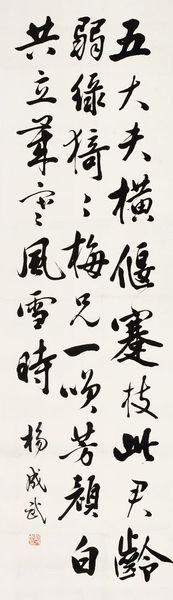 五大夫橫偃蹇枝此君齡
弱綠猗〻梅兄一咲芳顏白
共立寒風雪時
楊成武